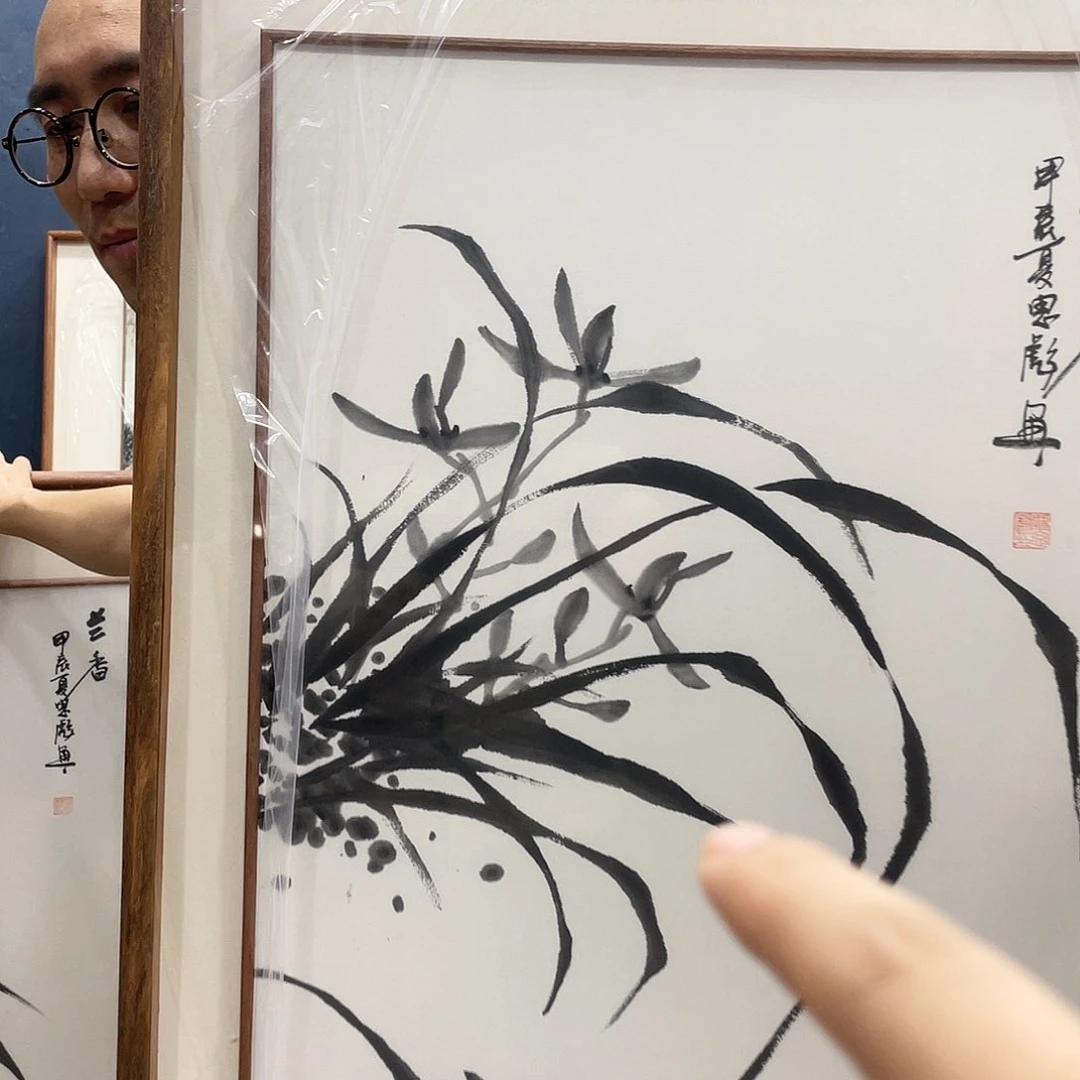 甲辰夏思彪画
兰香
甲辰夏思彪画